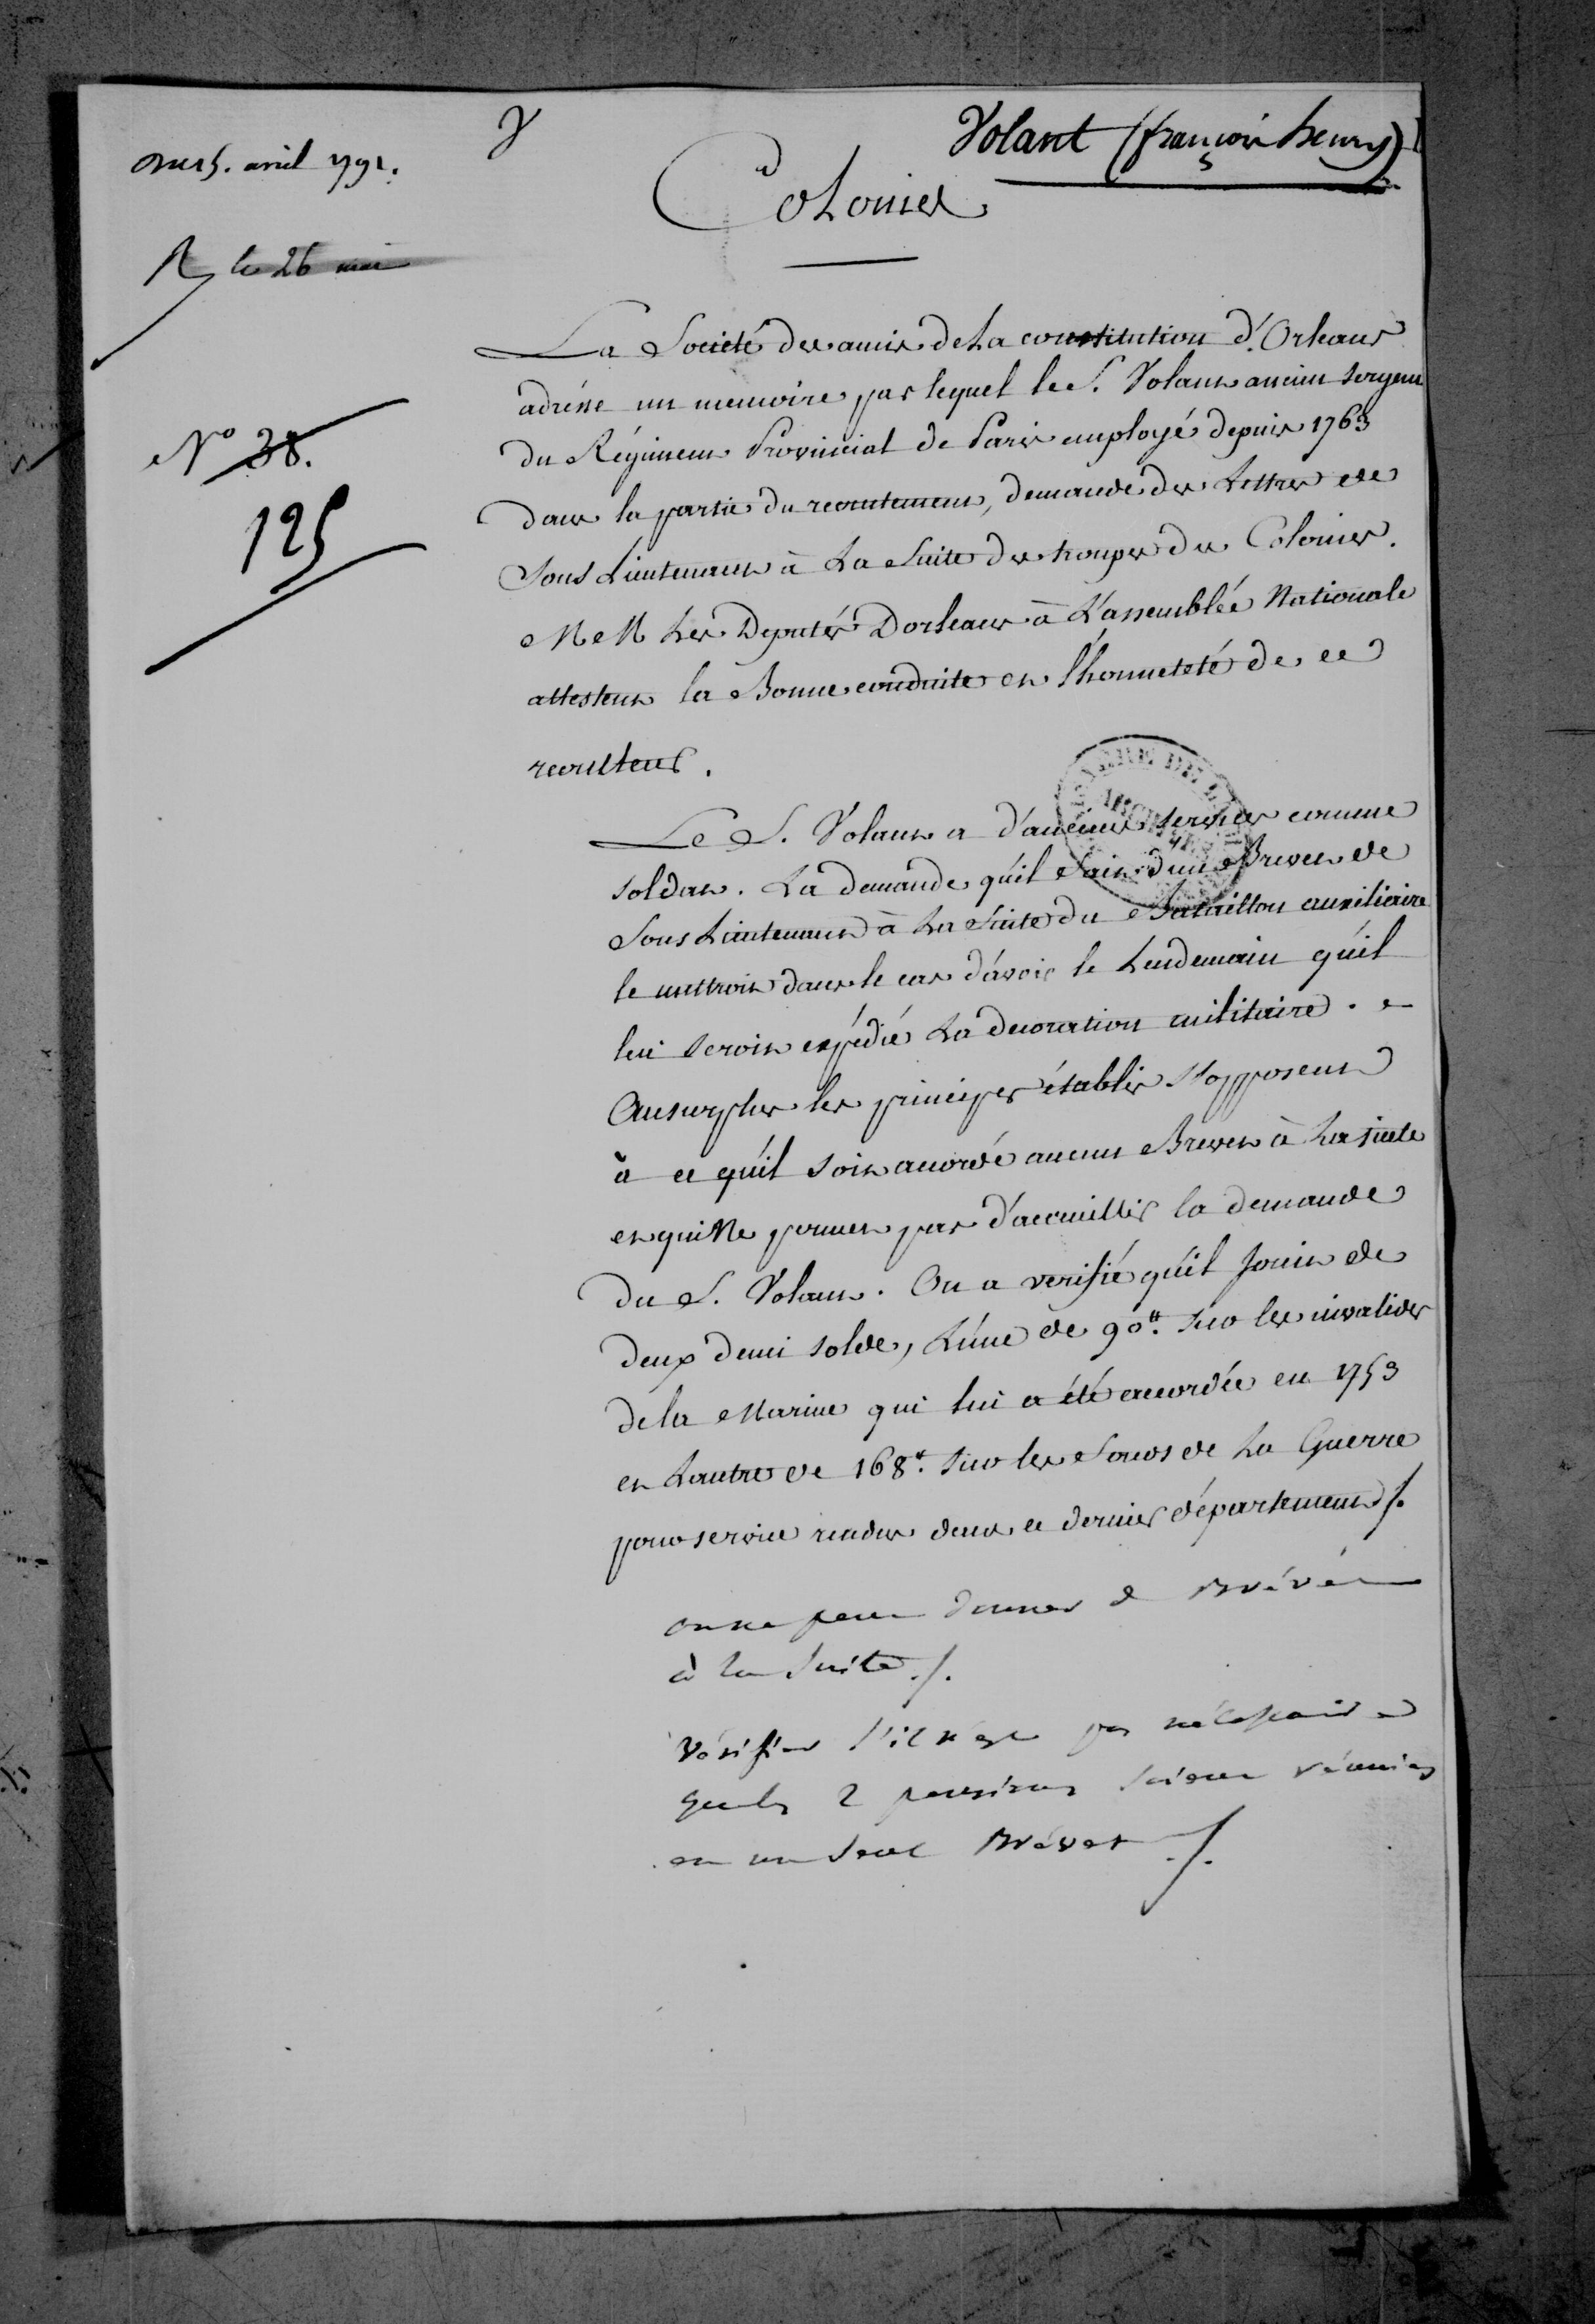 avril 1791.
V
Volant (françois henry)
Colonies
R le 26 mai
N° 38.
125
La Société des amis de La constitution d'Orleans
adrésse un memoire par lequel le S. Volant ancien sergent
du Régiment Provincial de Paris employé depuis 1763
dans la partie du recrutement, demande des Lettres de
Sous Lieutenant à La Suite des troupes des Colonies.
MM Les Deputés Dorleans à L'assemblée Nationale
attestent la Bonne conduite et l'honneteté de ce
recruteur.
Le S. Volant a d'anciens services comme
soldat. La demande qu'il fait d'un Brevet de
Sous Lieutenant à La Suite du Bataillon auxiliaire
le mettroit dans le cas d'avoir le Lendemain qu'il
lui seroit expédié La decoration militaire.
Ausurplus les principes établis s'opposent
à ce qu'il soit accordé aucun Brevet à La suite
et qui Ne permet pas d'accueillir la demande
du S. Volant. On a verifié qu'il jouit de
deux demi solde, L'une de 90#. sur les invalides
dela Marine qui lui a été accordée en 1753
et Lautre de 168#. sur les Fonds de La Guerre
pour service rendus dans ce dernier département ./.
on ne peut donner de Brévét
à la Suite ./.
Vérifier s'il n'est pas nécéssaire
que les 2 pensions soient réunies
en un seul Brévet ./.